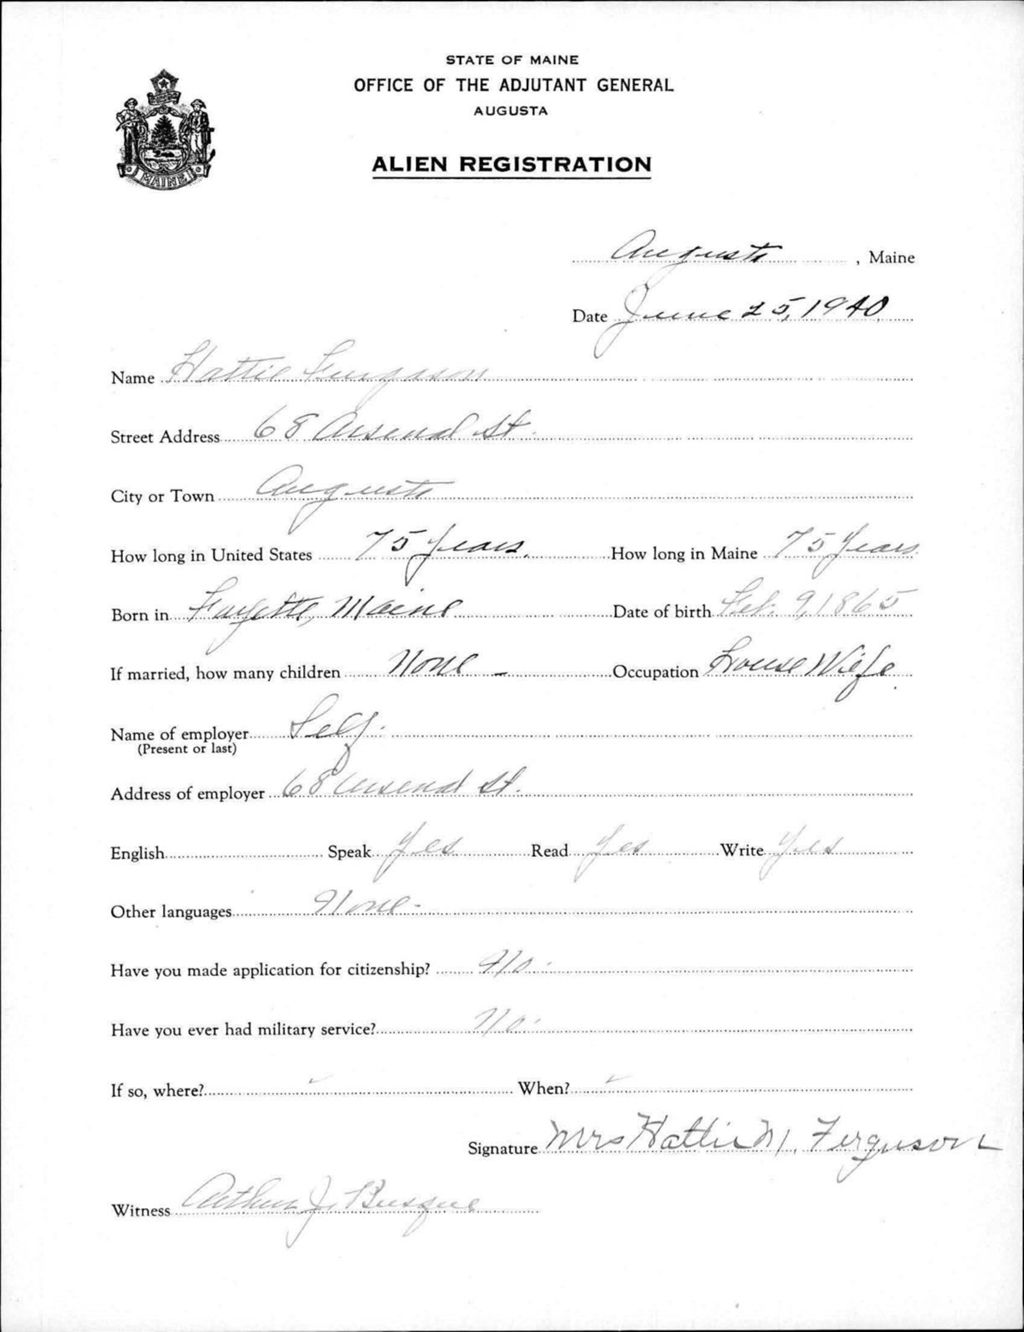 STATE OF MAINE
OFFICE OF THE ADJUTANT GENERAL
AUGUSTA
ALIEN REGISTRATION
MAINE
Augusta, Maine
Date June 25, 1940
Name Hattie Furguson
Street Address 68 Arsenal St.
City or Town Augusta
How long in United States 75 Years. How long in Maine 75 Years.
Born in Fayette, Maine Date of birth Feb. 9, 1865
If married, how many children None - Occupation House Wife
Name of employer Self.
(Present or last)
Address of employer 68 Arsenal St.
English Speak Yes Read Yes Write Yes
Other languages None -
Have you made application for citizenship? No.
Have you ever had military service? No.
If so, where? When?
Signature Mrs Hattie M. Ferguson
Witness Arthur J. Busque